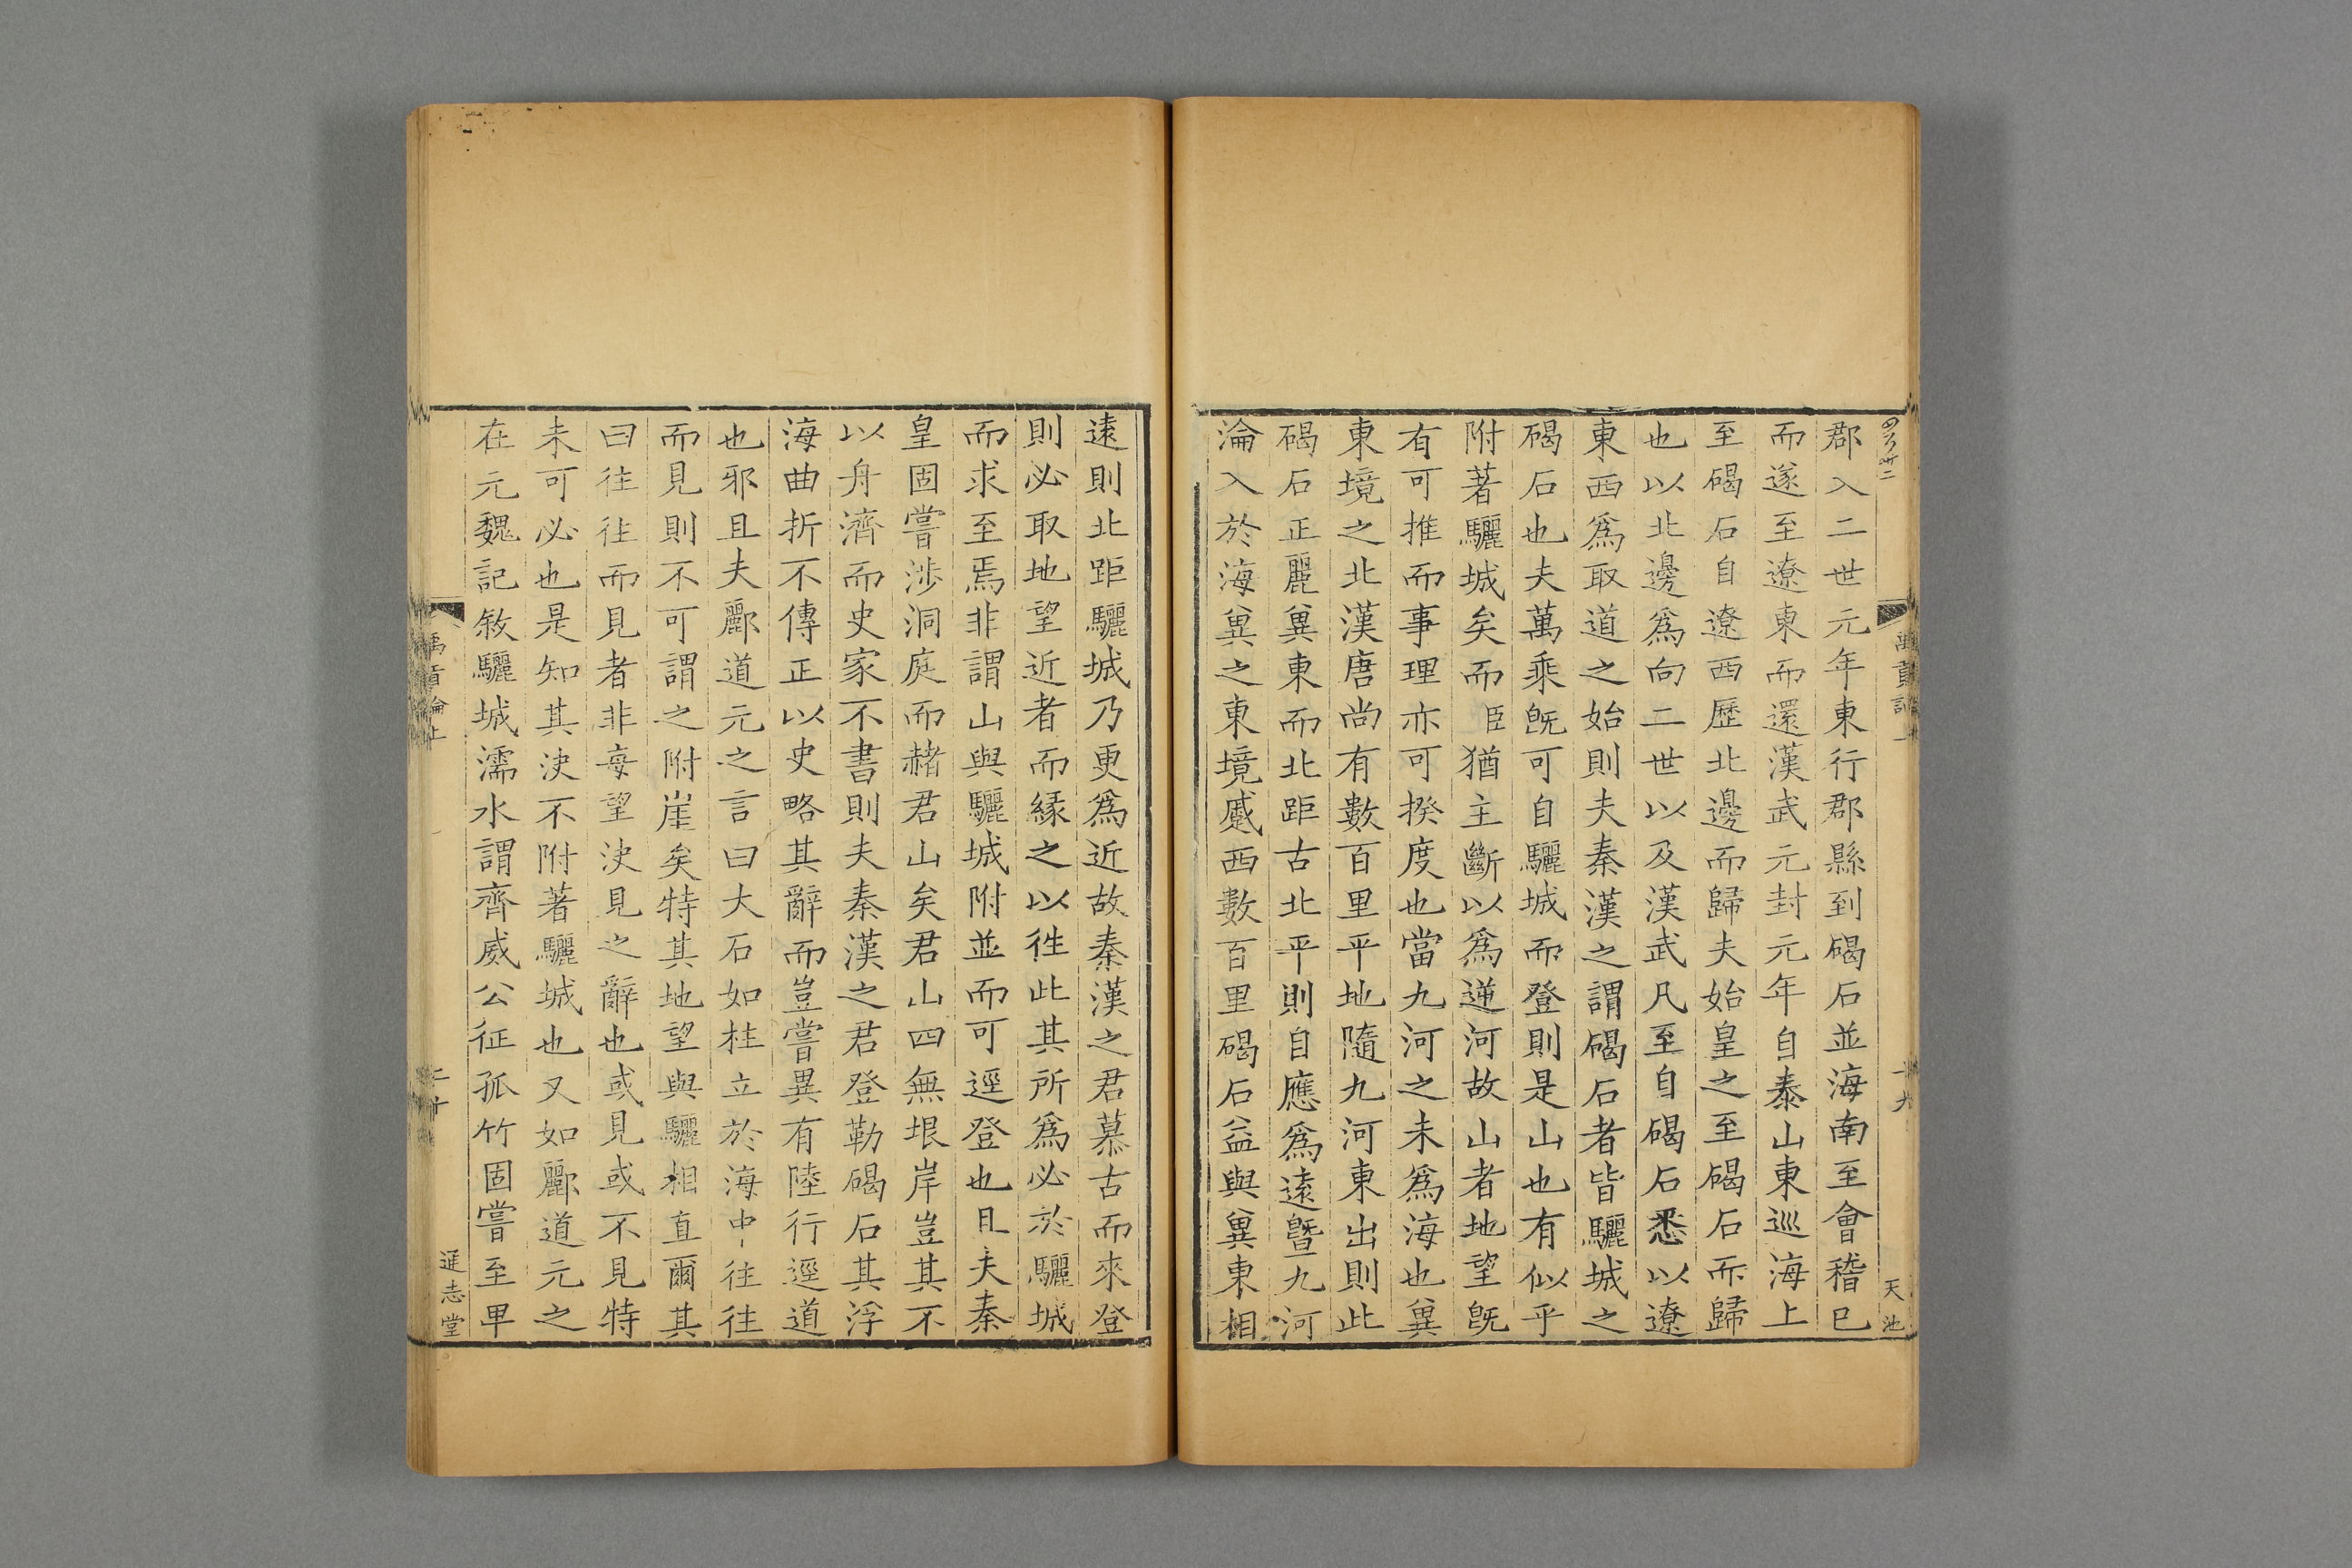 禹貢論上
十九
天池
郡入二世元年東行郡縣到碣石並海南至會稽巳
而遂至遼東而還漢武元封元年自泰山東巡海上
至碣石自遼西歷北邊而歸夫始皇之至碣石而歸
也以北邊爲向二世以及漢武凡至自碣石悉以遼
東西爲取道之始則夫秦漢之謂碣石者皆驪城之
碣石也夫萬乘旣可自驪城而登則是山也有似乎
附著驪城矣而臣猶主斷以爲逆河故山者地望旣
有可推而事理亦可揆度也當九河之未爲海也兾
東境之北漢唐尚有數百里平地隨九河東出則此
碣石正麗兾東而北距古北平則自應爲遠暨九河
淪入於海兾之東境蹙西數百里碣石益與兾東相
遠則北距驪城乃更爲近故秦漢之君慕古而來登
則必取地望近者而緣之以徃此其所爲必於驪城
而求至焉非謂山與驪城附並而可逕登也且夫秦
皇固嘗涉洞庭而赭君山矣君山四無垠岸豈其不
以舟濟而史家不書則夫秦漢之君登勒碣石其浮
海曲折不傳正以史略其辭而豈嘗異有陸行逕道
也邪且夫酈道元之言曰大石如柱立於海中往往
而見則不可謂之附崖矣特其地望與驪相直爾其
曰往往而見者非每望決見之辭也或見或不見特
未可必也是知其決不附著驪城也又如酈道元之
在元魏記敘驪城濡水謂齊威公征孤竹固嘗至卑
禹貢論上
二十
遜志堂